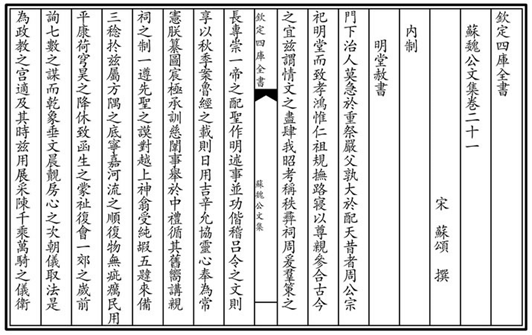 欽定四庫全書
蘇魏公文集卷二十一
宋 蘇頌 撰
內制
明堂赦書
門下治人莫急於重祭嚴父孰大於配天昔者周公宗
祀明堂而致孝鴻惟仁祖規撫路寢以尊親參合古今
之宜兹謂情文之盡肆我昭考稱秩彞祠周爰羣策之
欽定四庫全書
蘇魏公文集
長專崇一帝之配聖作明述事並功偕稽吕令之文則
享以秋季案魯經之載則日用吉辛允協靈心奉為常
憲朕纂圖宸極承訓慈闈事舉於中禮循其舊嚮講親
祠之制一遵先聖之謨對越上神翕受純嘏五肆來備
三稔於兹屬方隅之底寧嘉河流之順復物無疵癘民用
平康荷穹昊之降休致函生之蒙祉復會一郊之歲前
詢七數之謀而乾象垂文晨觀房心之次朝儀取法是
為政教之宫適及其時兹用展采陳千乘萬騎之儀衛